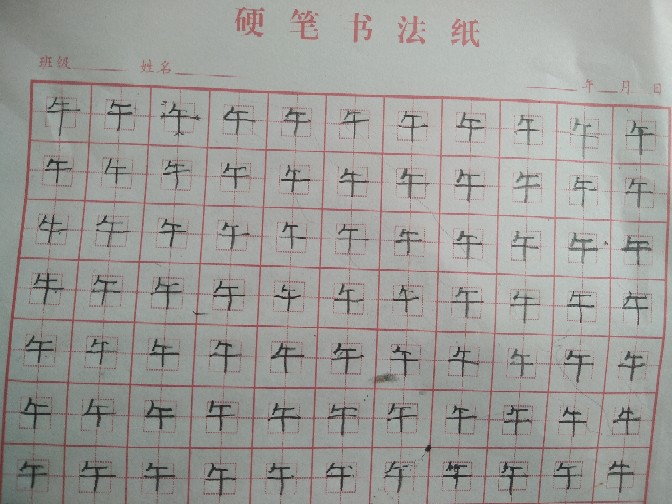 硬笔书法纸
班级 姓名
年 月 日
午 午 午 午 午 午 午 午 午 午 午
午 午 午 午 午 午 午 午 午 午 午
牛 午 午 午 午 午 午 午 午 午 午
牛 午 午 午 午 午 午 午 午 午 午
午 午 午 午 午 午 午 午 午 午 午
午 午 午 午 午 午 午 午 午 午 牛
午 午 午 午 午 午 午 午 午 牛